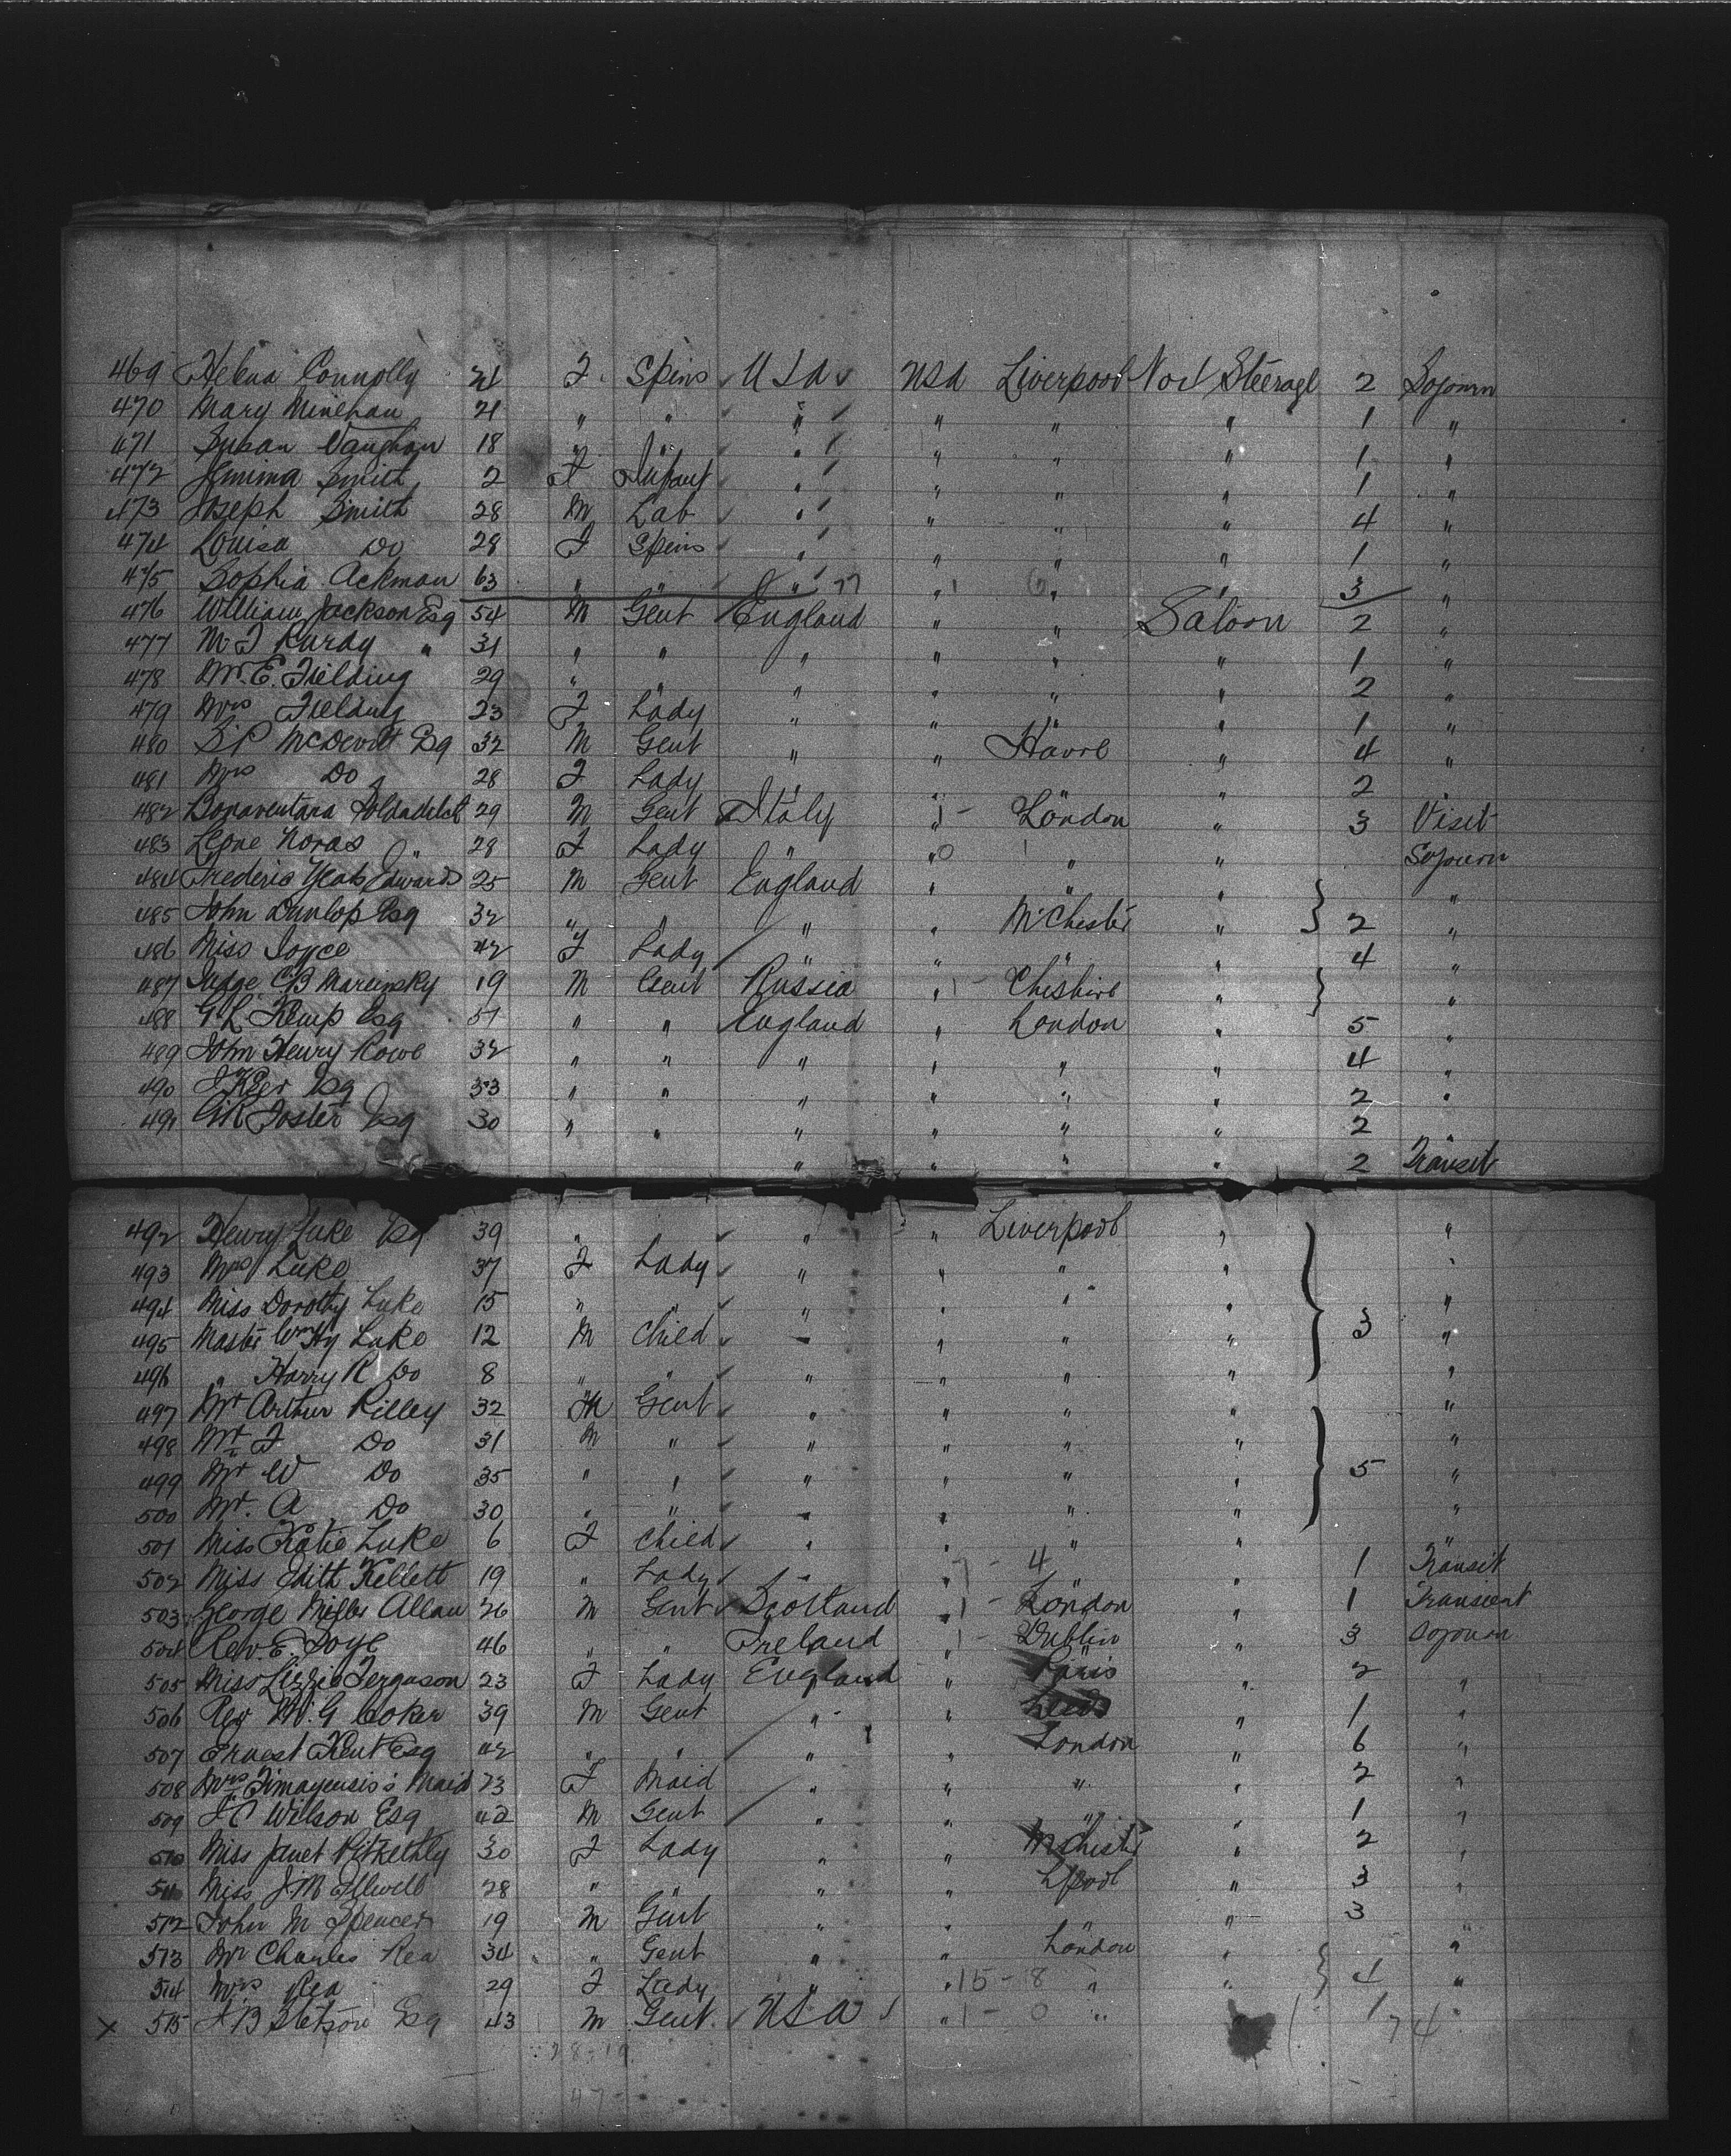 469 Helena Connolly 21 F. Spins U S A USA Liverpool No 1 Steerage 2 Sojourn
470 Mary Minehan 21 " " " " " " 1 "
471 Susan Vaughan 18 " " " " " " 1 "
472 Emma Smith 2 F Infant " " " " 1 "
473 Joseph Smith 28 M Lab " " " " 4 "
474 Louisa Do 28 F Spins " " " " 1 "
475 Sophia Ackman 63 " " " " " " 3 "
476 William Jackson Esq 54 M Gent England " " Saloon 2 "
477 M J " 31 " " " " " " 1 "
478 Mr. E. Fielding 29 " " " " " " 2 "
479 Mrs Fielding 23 F Lady " " " " 1 "
480 McDevitt Esq 32 M Gent " " Havre " 4 "
481 Mrs Do 28 F Lady " " " " 2 "
482 Bonaventura 29 M Gent Italy " London " 3 Visit
483 Leone Noras " 28 F Lady " " " " Sojourn
484 Frederic Yeats Edwards 25 M Gent England " " " "
485 John Dunlop Esq 32 " " " " M'Chester " 2 "
486 Miss Joyce 42 F Lady " " " " 4 "
487 Judge C B 19 M Gent Russia " Cheshire " "
488 G L Kemp Esq 51 " " England " London " 5 "
489 John Henry Rowe 32 " " " " " " 4 "
490 J Keer Esq 33 " " " " " " 2 "
491 Foster Esq 30 " " " " " " 2 "
" " " " 2 Transit
492 Henry Luke Esq 39 " " " Liverpool " "
493 Mrs Luke 37 F Lady " " " " "
494 Miss Dorothy Luke 15 " " " " " " "
495 Master Wm Hy Luke 12 M Child " " " " 3 "
496 " Harry R Do 8 " " " " " " "
497 Mr Arthur Rilley 32 M Gent " " " " "
498 Mr F Do 31 M " " " " " "
499 Mr W Do 35 " " " " " " 5 "
500 Mr. A Do 30 " " " " " " "
501 Miss Katie Luke 6 F Child " " " " "
502 Miss Edith Kellett 19 " Lady " " 4 " " 1 Transit
503 George Mills Allan 26 M Gent Scotland " 1 - London " 1 Transient
504 Rev. E. 46 " " Ireland " 1 - Dublin " 3 Sojourn
505 Miss Lizzie Ferguson 23 F Lady England " Paris " 2 "
506 Rev W. G Coker 39 M Gent " " Leeds " 1 "
507 Ernest Kent Esq 42 " " " " London " 6 "
508 Mrs Maid 23 F Maid " " " " 2 "
509 J C Wilson Esq 42 M Gent " " " " 1 "
510 Miss Janet Pitkethly 30 F Lady " " M'Chester " 2 "
511 Miss J. M 28 " " " " L'pool " 3 "
512 John M Spencer 19 M Gent " " " 3
513 Mr Charles Rea 34 " Gent " " London " "
514 Mrs Rea 29 F Lady " " 15 - 8 " " 4 "
x 515 J B Stetson Esq 43 M Gent. USA " 1 - 0 " 1
74